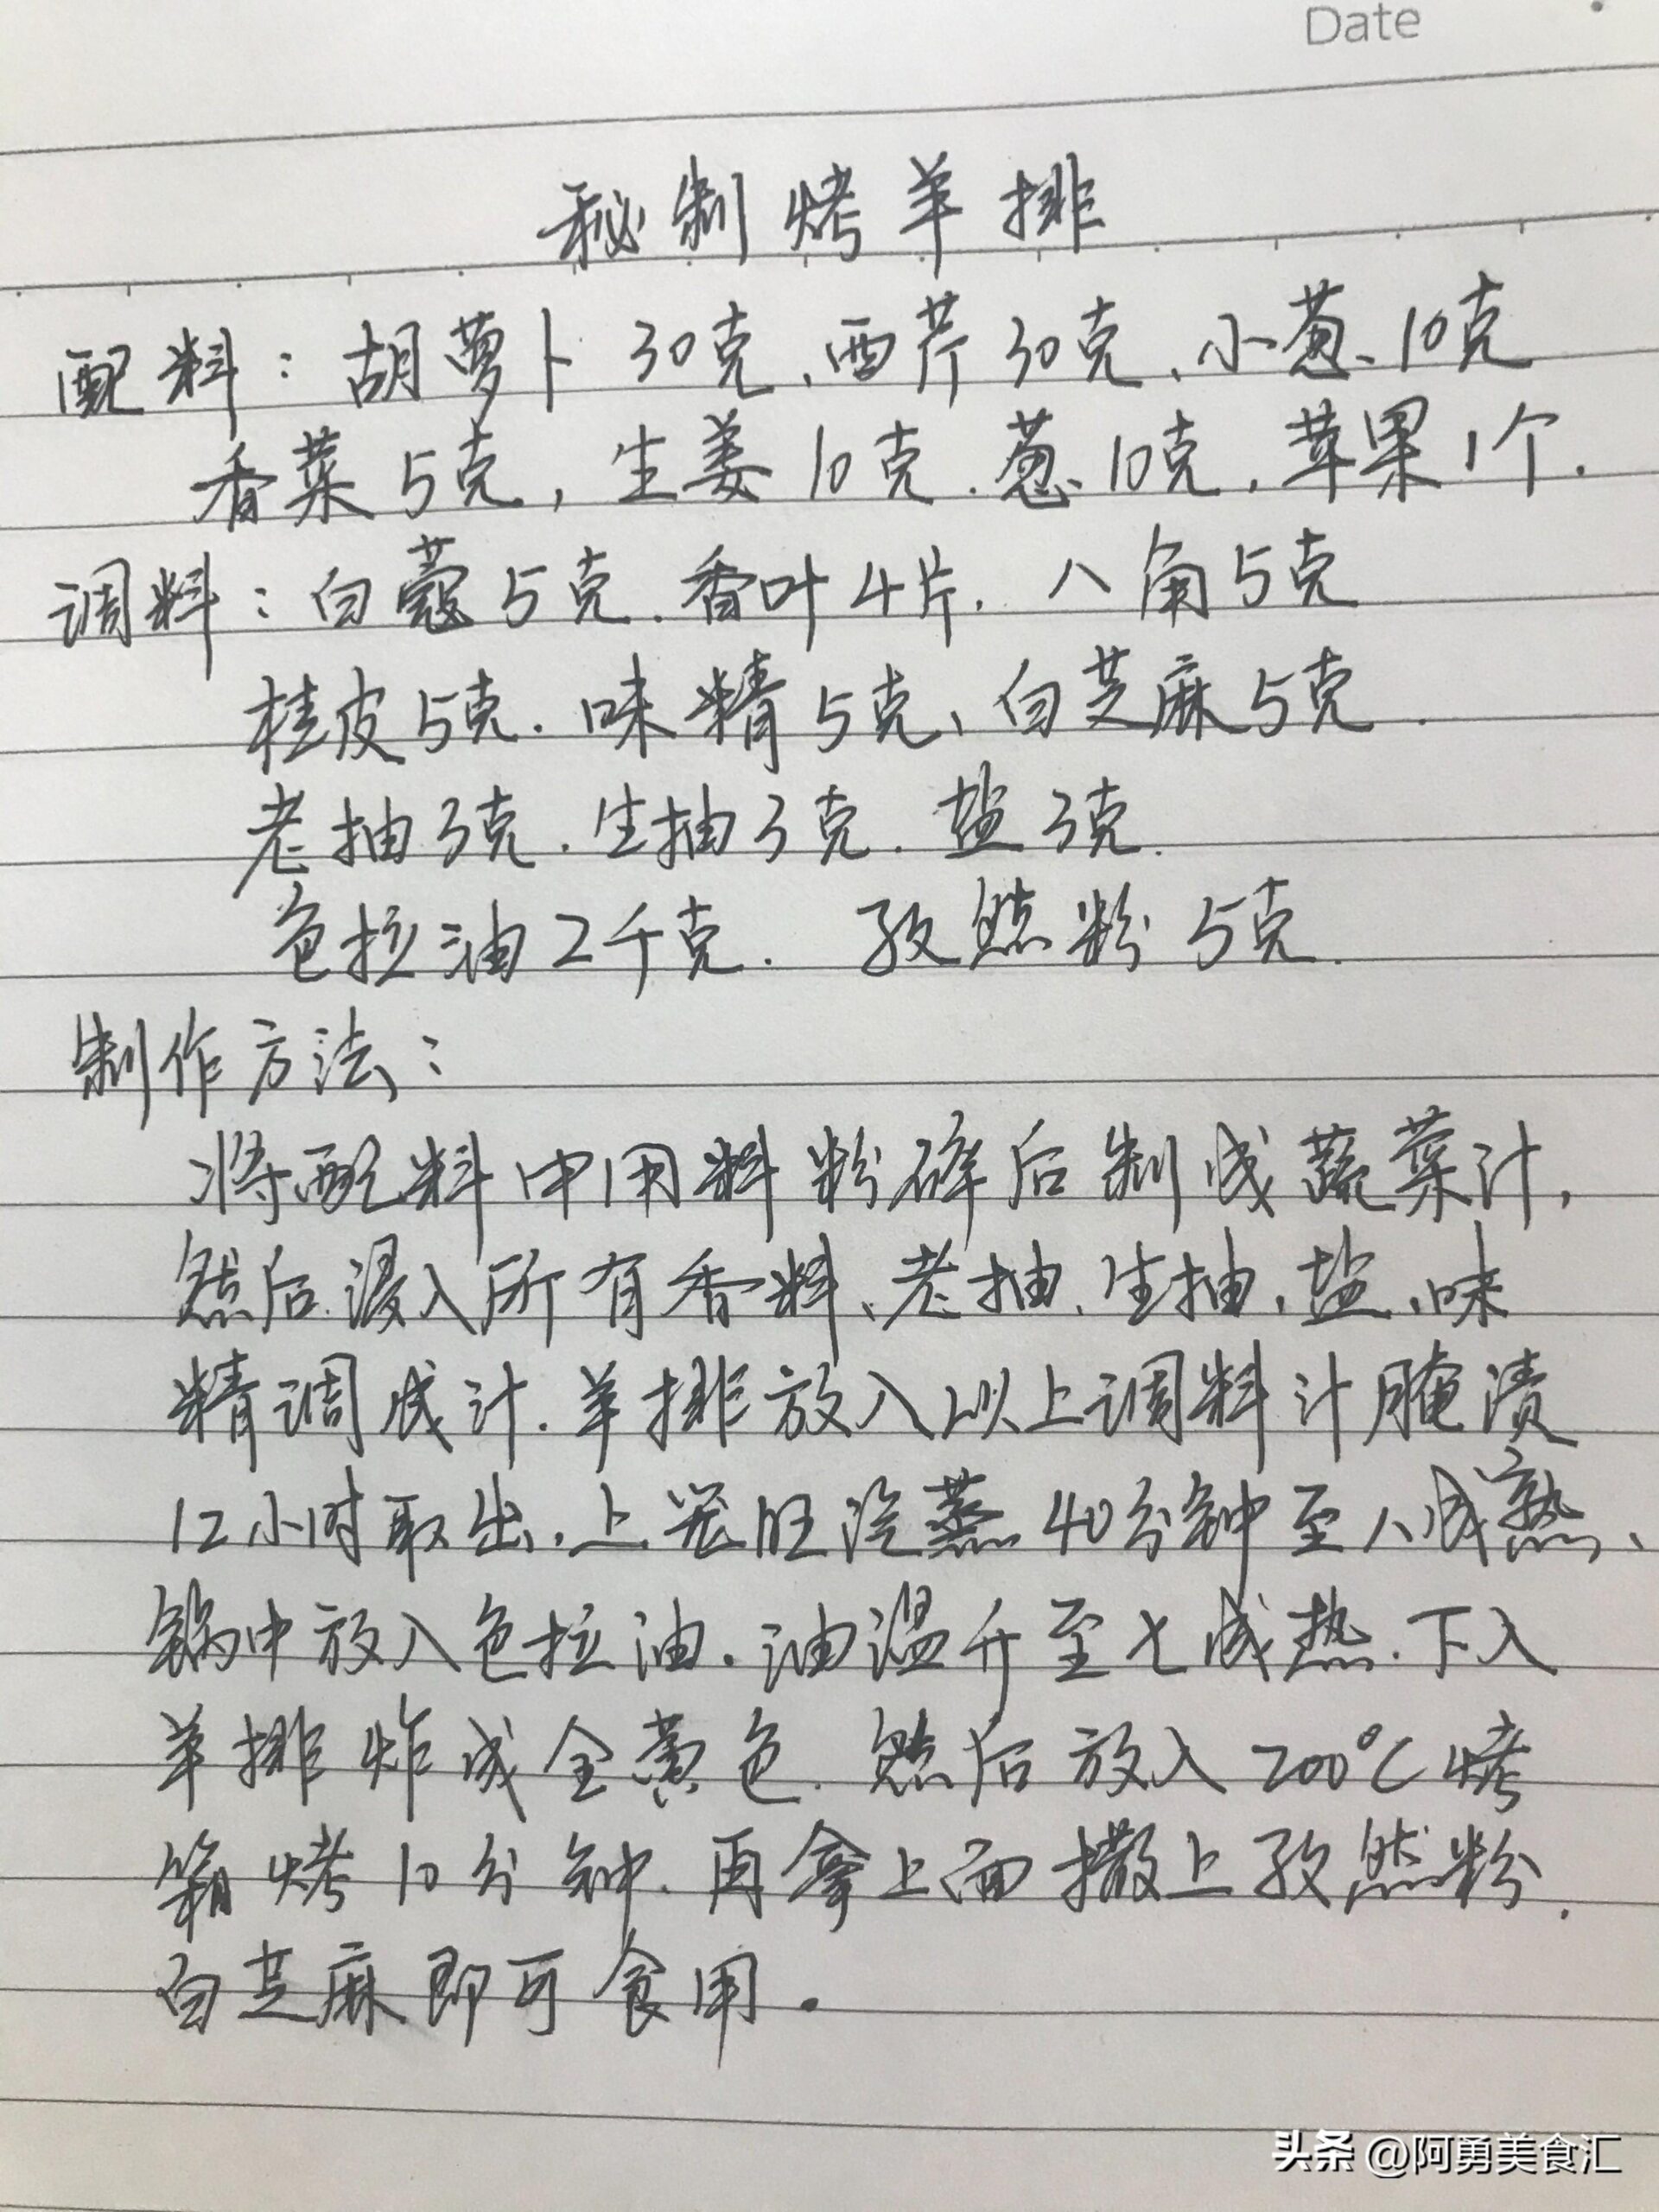 Date
秘制烤羊排
配料：胡萝卜30克、西芹30克、小葱10克
香菜5克，生姜10克、葱10克，苹果1个.
调料：白蔻5克.香叶4片. 八角5克
桂皮5克.味精5克、白芝麻5克.
老抽3克.生抽3克.盐3克.
色拉油2千克. 孜然粉5克.
制作方法：
将配料中用料粉碎后制成蔬菜汁，
然后浸入所有香料、老抽、生抽，盐、味
精调成汁.羊排放入以上调料汁腌渍
12小时取出.上笼旺汽蒸40分钟至八成熟、
锅中放入色拉油.油温升至七成热.下入
羊排炸成金黄色.然后放入200℃烤
箱烤10分钟.再拿上面撒上孜然粉.
白芝麻即可食用.
头条 @阿勇美食汇